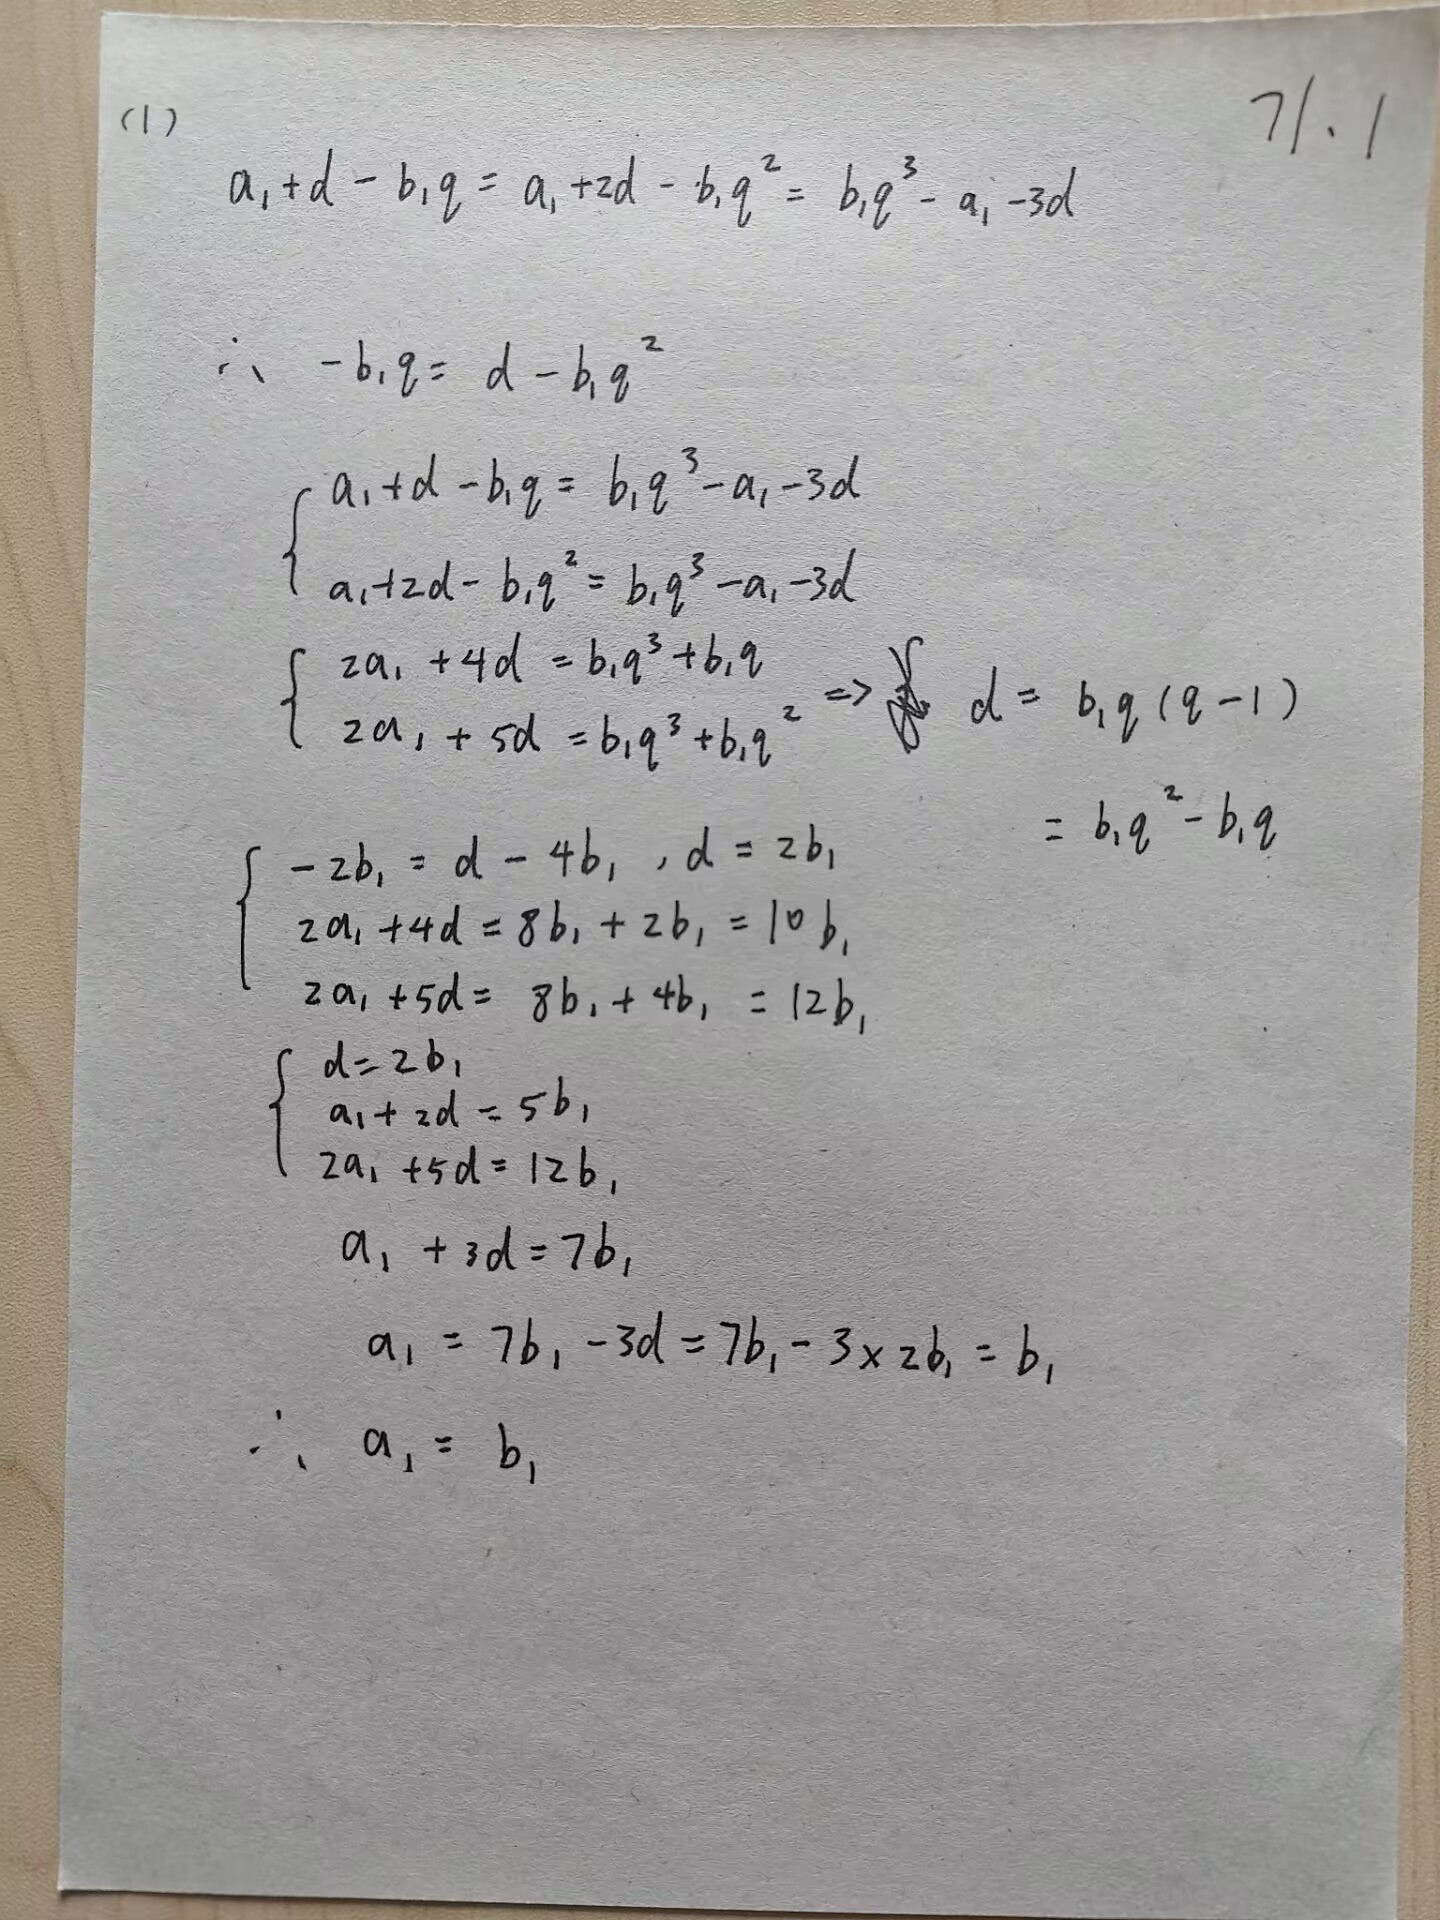 (1) 71.1
a₁+d-b₁q=a₁+2d-b₁q²=b₁q³-a₁-3d
∴ -b₁q=d-b₁q²
{ a₁+d-b₁q=b₁q³-a₁-3d
a₁+2d-b₁q²=b₁q³-a₁-3d
{ 2a₁+4d=b₁q³+b₁q
2a₁+5d=b₁q³+b₁q² => d=b₁q(q-1)
=b₁q²-b₁q
{ -2b₁=d-4b₁,d=2b₁
2a₁+4d=8b₁+2b₁=10b₁
2a₁+5d=8b₁+4b₁=12b₁
{ d=2b₁
a₁+2d=5b₁
2a₁+5d=12b₁
a₁+3d=7b₁
a₁=7b₁-3d=7b₁-3×2b₁=b₁
∴ a₁=b₁